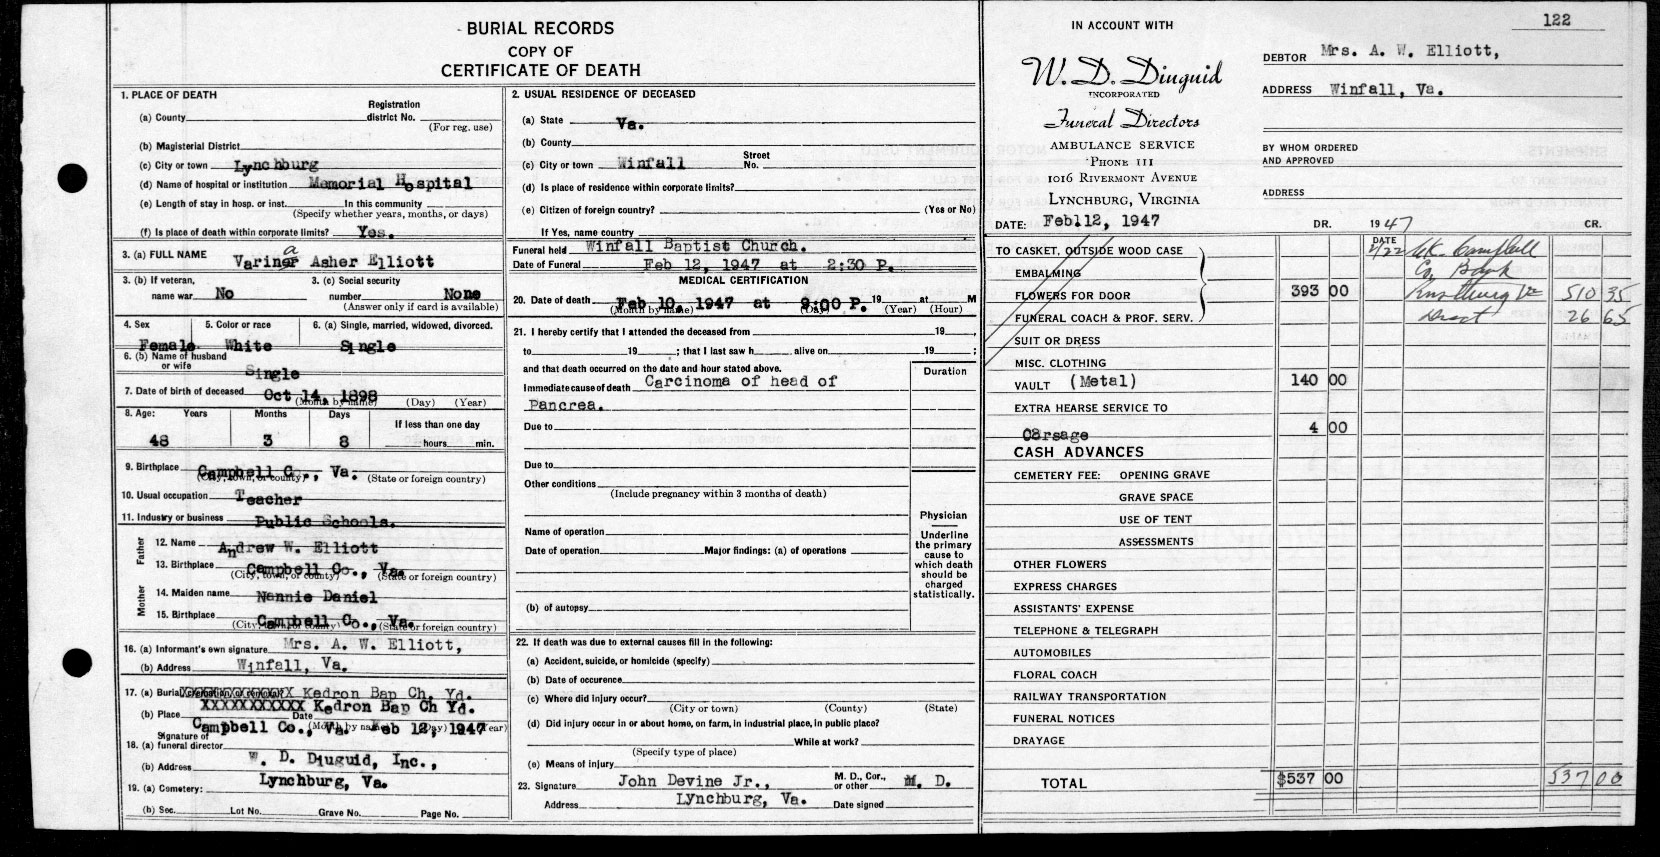 BURIAL RECORDS
COPY OF
CERTIFICATE OF DEATH
1. PLACE OF DEATH
(a) County Registration district No.
(For reg. use)
(b) Magisterial District
(c) City or town Lynchburg
(d) Name of hospital or institution Memorial Hospital
(e) Length of stay in hosp. or inst. In this community
(Specify whether years, months, or days)
(f) Is place of death within corporate limits? Yes.
3. (a) FULL NAME Variner a Asher Elliott
3. (b) If veteran, name war No
3. (c) Social security number None
(Answer only if card is available)
4. Sex 5. Color or race 6. (a) Single, married, widowed, divorced.
Female White Single
6. (b) Name of husband or wife Single
7. Date of birth of deceased Oct 14, 1898
(Month by name) (Day) (Year)
8. Age: Years Months Days If less than one day
48 3 8 hours min.
9. Birthplace Campbell Co., Va.
(City, town, or county) (State or foreign country)
10. Usual occupation Teacher
11. Industry or business Public Schools.
Father
12. Name Andrew W. Elliott
13. Birthplace Campbell Co., Va.
(City, town, or county) (State or foreign country)
Mother
14. Maiden name Nannie Daniel
15. Birthplace Campbell Co., Va.
(City, town, or county) (State or foreign country)
16. (a) Informant's own signature Mrs. A. W. Elliott,
(b) Address Winfall, Va.
17. (a) Burial Kedron Bap Ch. Yd.
XXXXXXXXXXX Kedron Bap Ch Yd.
(b) Place Date
Campbell Co., Va. Feb 12, 1947
(Month by name) (Day) (Year)
18. (a) Signature of funeral director W. D. Diuguid, Inc.,
(b) Address Lynchburg, Va.
19. (a) Cemetery:
(b) Sec. Lot No. Grave No. Page No.
2. USUAL RESIDENCE OF DECEASED
(a) State Va.
(b) County
(c) City or town Winfall Street No.
(d) Is place of residence within corporate limits?
(e) Citizen of foreign country? (Yes or No)
If Yes, name country
Funeral held Winfall Baptist Church.
Date of Funeral Feb 12, 1947 at 2:30 P.
MEDICAL CERTIFICATION
20. Date of death Feb 10, 1947 at 9:00 P. 19 at M
(Month by name) (Day) (Year) (Hour)
21. I hereby certify that I attended the deceased from 19
to 19 ; that I last saw h alive on 19 ;
and that death occurred on the date and hour stated above.
Duration
Immediate cause of death Carcinoma of head of
Pancrea.
Due to
Due to
Other conditions
(Include pregnancy within 3 months of death)
Name of operation
Date of operation Major findings: (a) of operations
(b) of autopsy
Physician
Underline
the primary
cause to
which death
should be
charged
statistically.
22. If death was due to external causes fill in the following:
(a) Accident, suicide, or homicide (specify)
(b) Date of occurence
(c) Where did injury occur?
(City or town) (County) (State)
(d) Did injury occur in or about home, on farm, in industrial place, in public place?
While at work?
(Specify type of place)
(e) Means of injury
23. Signature John Devine Jr., M. D., Cor., or other M. D.
Address Lynchburg, Va. Date signed
122
IN ACCOUNT WITH
W. D. Diuguid
INCORPORATED
Funeral Directors
AMBULANCE SERVICE
PHONE 111
1016 RIVERMONT AVENUE
LYNCHBURG, VIRGINIA
DATE: Feb.12, 1947
DEBTOR Mrs. A. W. Elliott,
ADDRESS Winfall, Va.
BY WHOM ORDERED
AND APPROVED
ADDRESS
DR. 1947 CR.
DATE
TO CASKET, OUTSIDE WOOD CASE
EMBALMING
FLOWERS FOR DOOR 393 00
FUNERAL COACH & PROF. SERV.
2/22 ck. Campbell
Co Bank
Rustburg Va 510 35
Disct 26 65
SUIT OR DRESS
MISC. CLOTHING
VAULT (Metal) 140 00
EXTRA HEARSE SERVICE TO
Corsage 4 00
CASH ADVANCES
CEMETERY FEE: OPENING GRAVE
GRAVE SPACE
USE OF TENT
ASSESSMENTS
OTHER FLOWERS
EXPRESS CHARGES
ASSISTANTS' EXPENSE
TELEPHONE & TELEGRAPH
AUTOMOBILES
FLORAL COACH
RAILWAY TRANSPORTATION
FUNERAL NOTICES
DRAYAGE
TOTAL $537 00 537 00